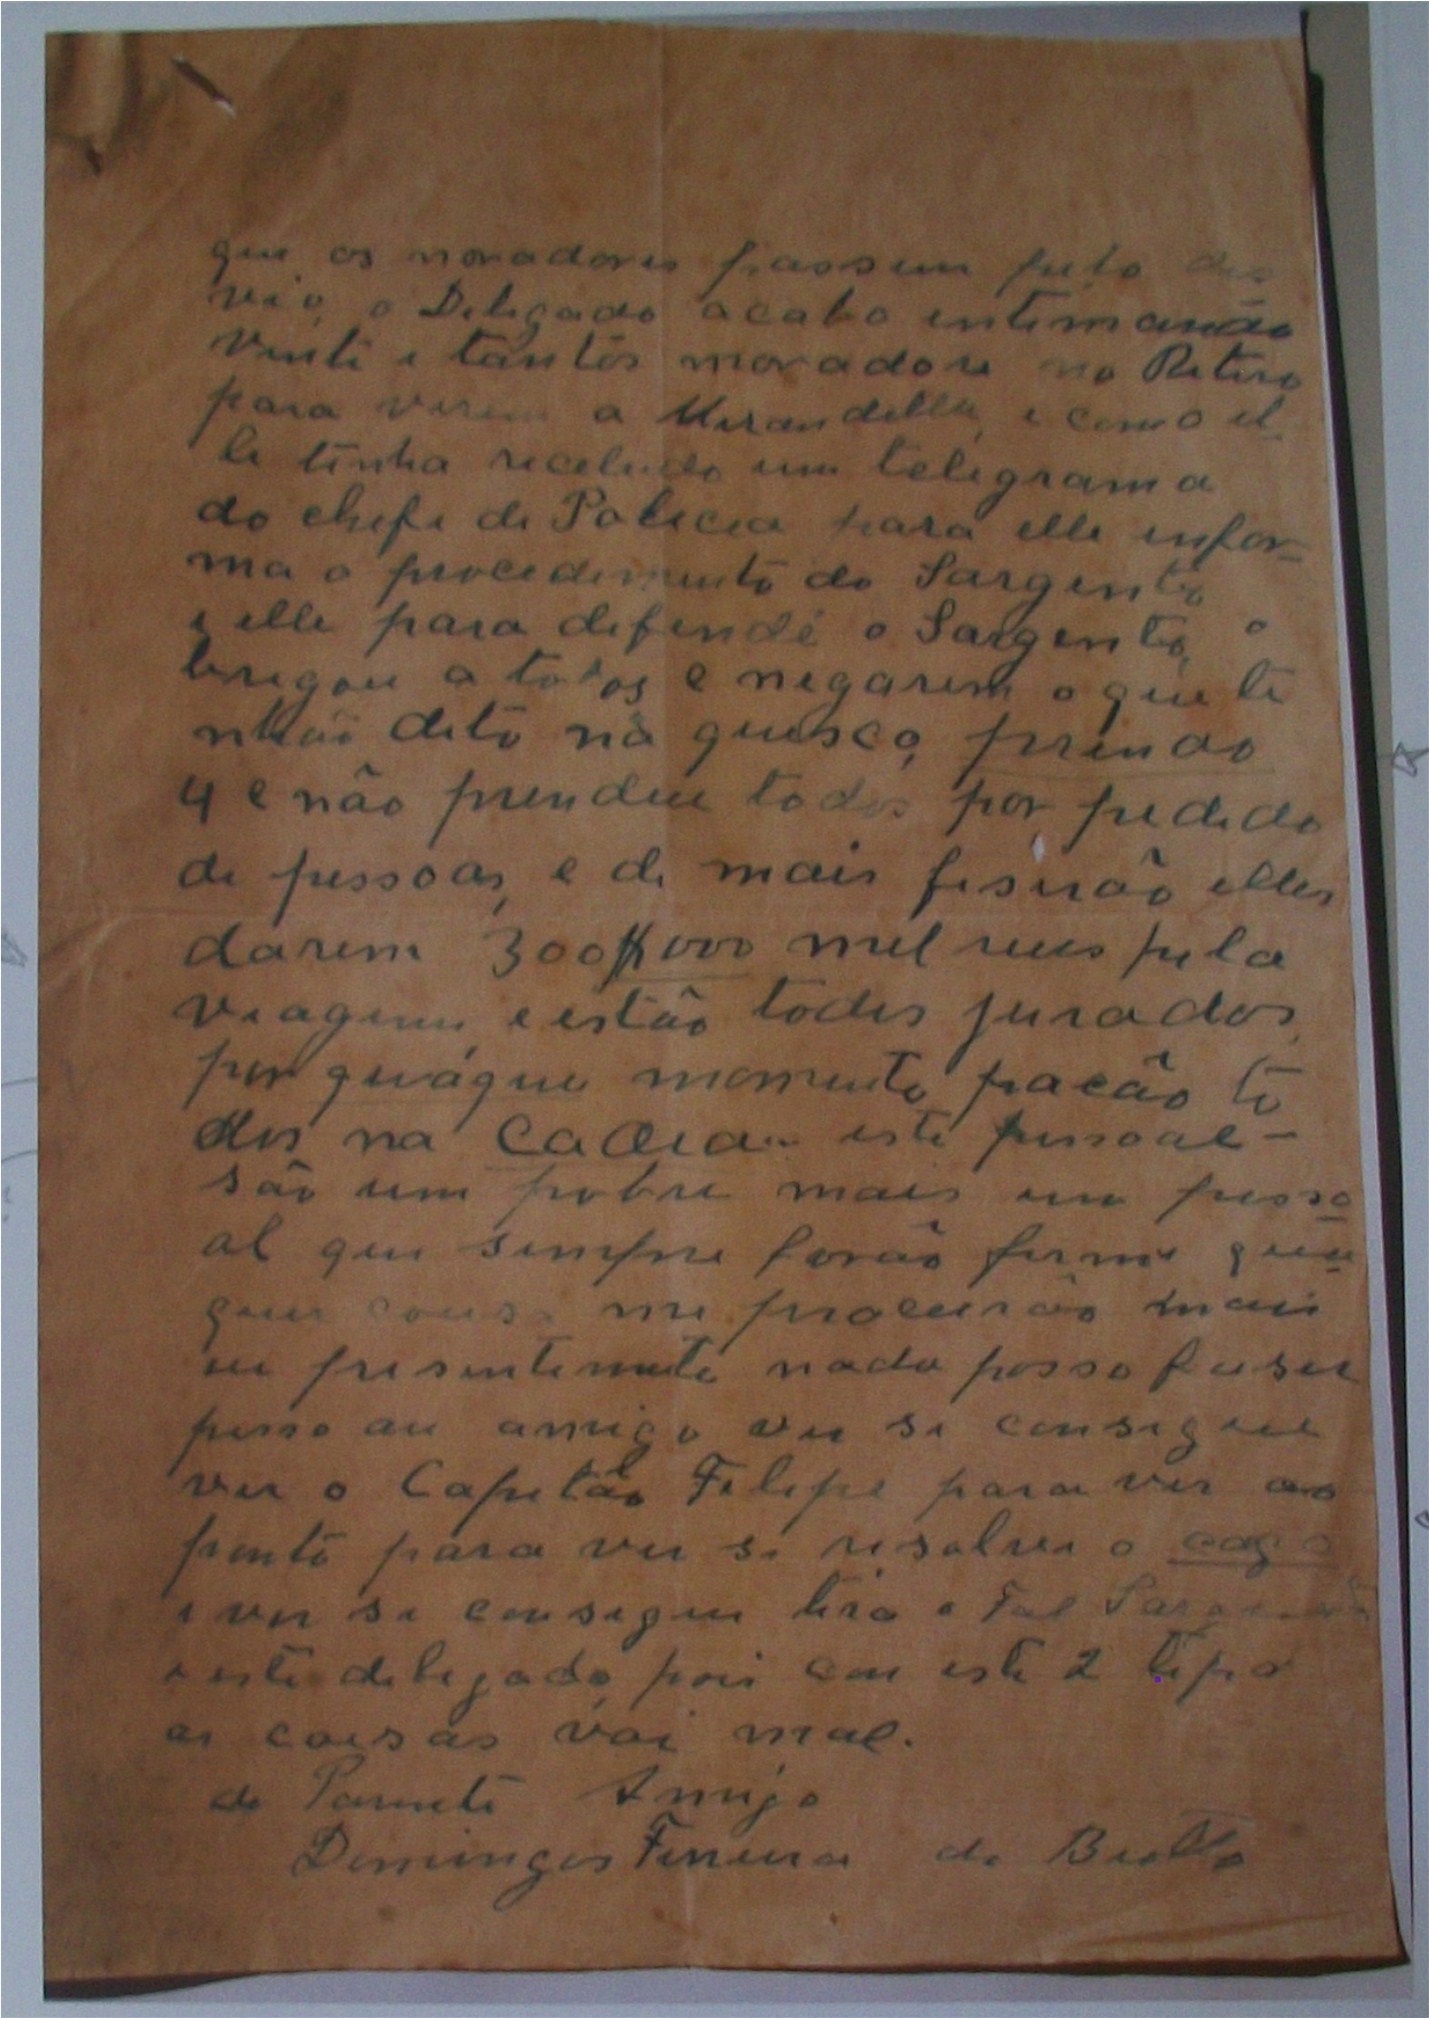 que os moradores passem pelo des
vio, o Delegado acabo intimando
vinte e tantos moradore no Retiro
para virem a Mirandella, e como el-
le tinha recebido um telegrama
do chefe de Policia para elle infor-
ma o procedimento do Sargento
e elle para defende o Sargento, o
brigou a todos e negarem o que ti
nhão dito na queisca, prendo
4 e não prendeu todos por pedido
de pessoas, e de mais fiserão elles
darem 300$000 mil reis pela
viagem, e estão todos jurados,
por quáque momento pacão to
dos na Cadeia este pessoal -
são um pobre mais um pesso
al que sempre forão firme quá
quer cousa me procurão mais
eu presentemente nada posso faser
pesso au amigo ver si consegue
ver o Capitão Filipe para ver ao
ponto para ver si resolver o cazo
e ver si consegue tira o tal Sargento
e este delegado, pois com este 2 tipo
as coisas vai mal.
do Parente Amigo
Domingos Ferreira de Britto